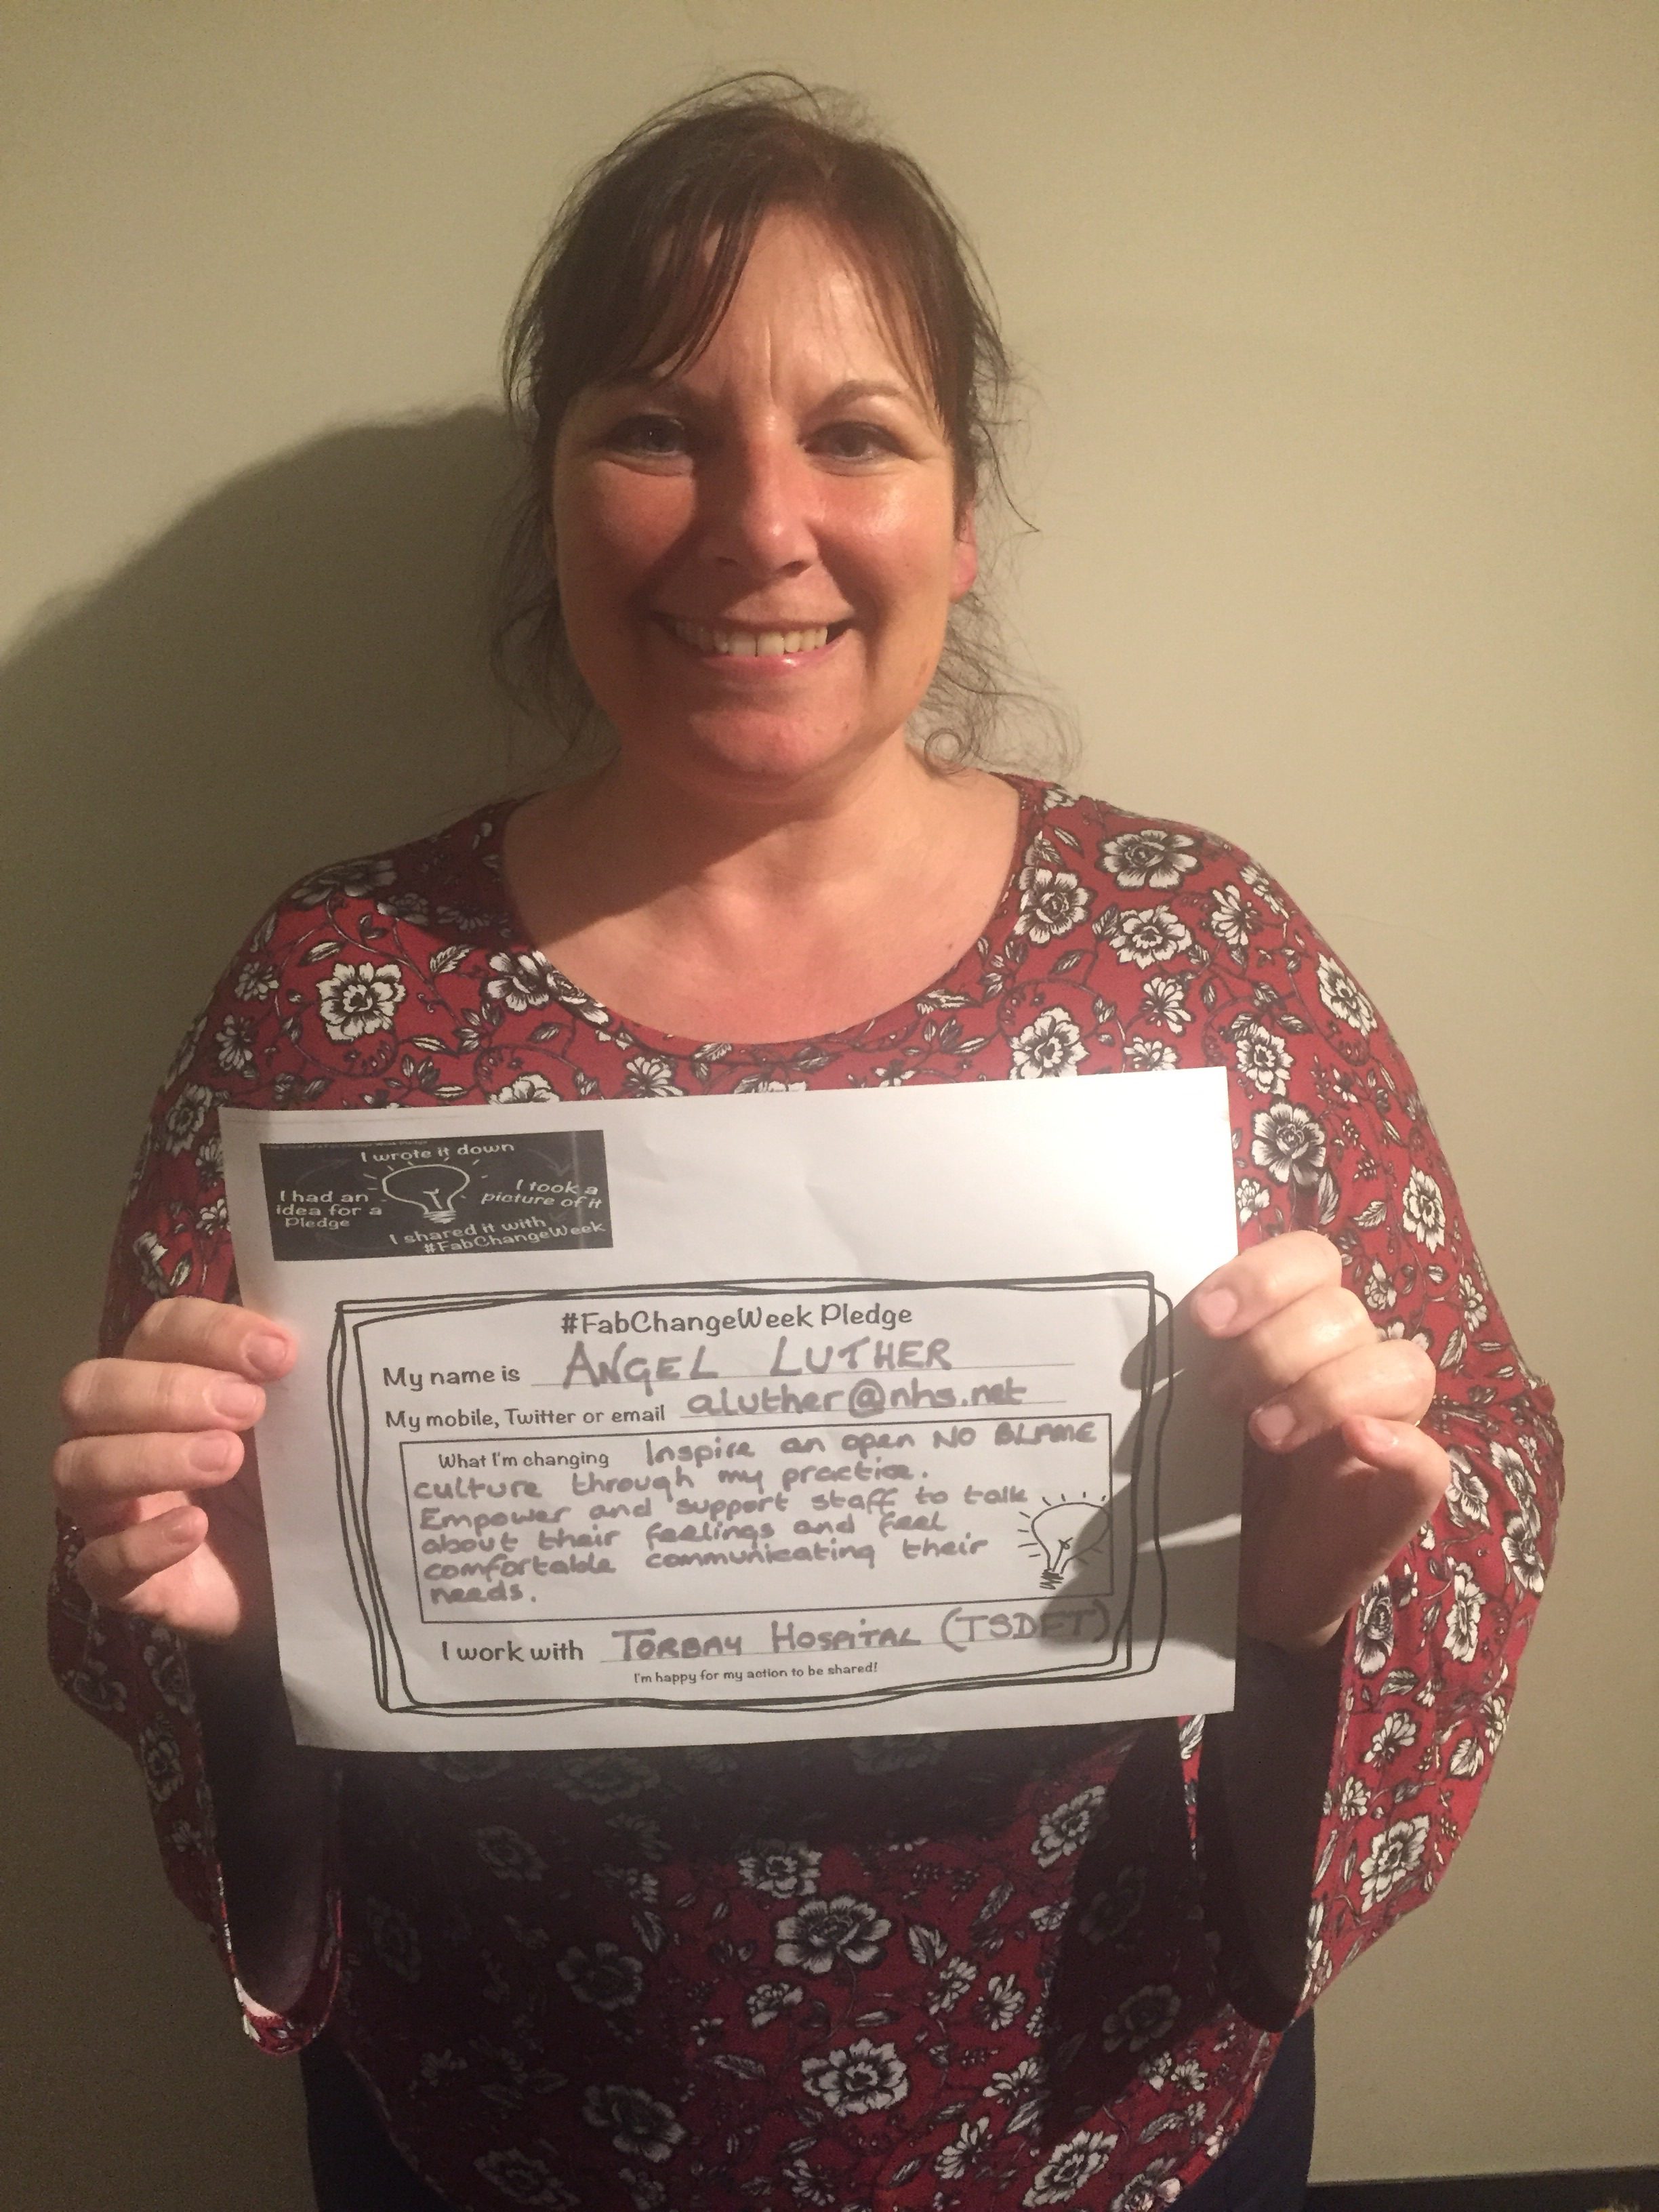 I wrote it down
I had an
idea for a
Pledge
I took a
picture of it
I shared it with
#FabChangeWeek
#FabChangeWeek Pledge
My name is ANGEL LUTHER
My mobile, Twitter or email aluther@nhs.net
What I'm changing Inspire an open NO BLAME
culture through my practice.
Empower and support staff to talk
about their feelings and feel
comfortable communicating their
needs.
I work with TORBAY HOSPITAL (TSDFT)
I'm happy for my action to be shared!